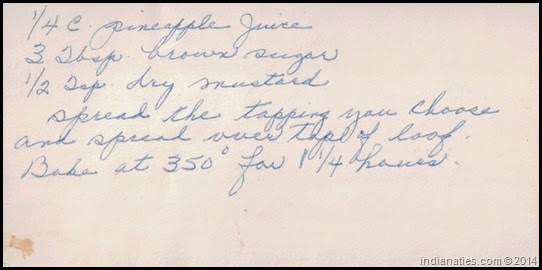 1/4 C. pineapple Juice
3 Tbsp. brown sugar
1/2 Tsp. dry mustard
spread the topping you choose
and spread over top of loaf.
Bake at 350° for 1 1/4 hours.
indianaties.com © 2014